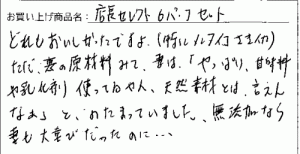 お買い上げ商品名：店長セレクト6パーフセット
どれもおいしかったですよ。(特に
ただ、妻の原材料みて、妻は、「やっぱり、甘味料
や乳化剤)使ってるやん、天然素材とは、言えん
なぁ」と、のたまっていました。無添加なら
妻も大喜びだったのに…